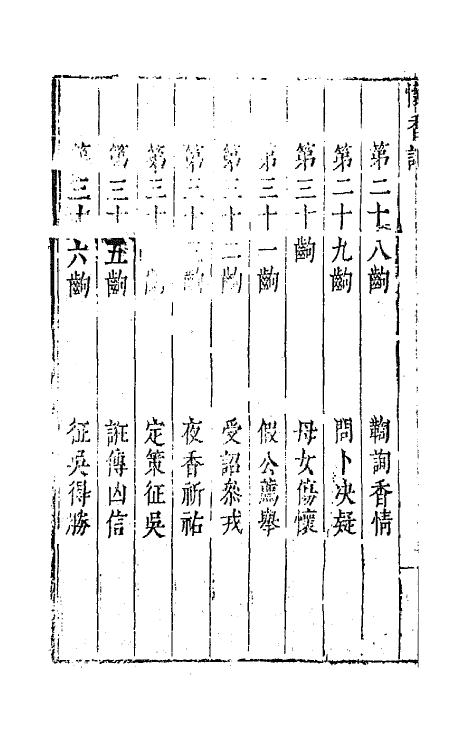 懷香記
第二十八齣 鞫詢香情
第二十九齣 問卜决疑
第三十齣 母女傷懷
第三十一齣 假公薦舉
第三十二齣 受詔叅戎
第三十三齣 夜香祈祐
第三十 齣 定策征吳
第三十五齣 誑傳凶信
第三十六齣 征吳得勝